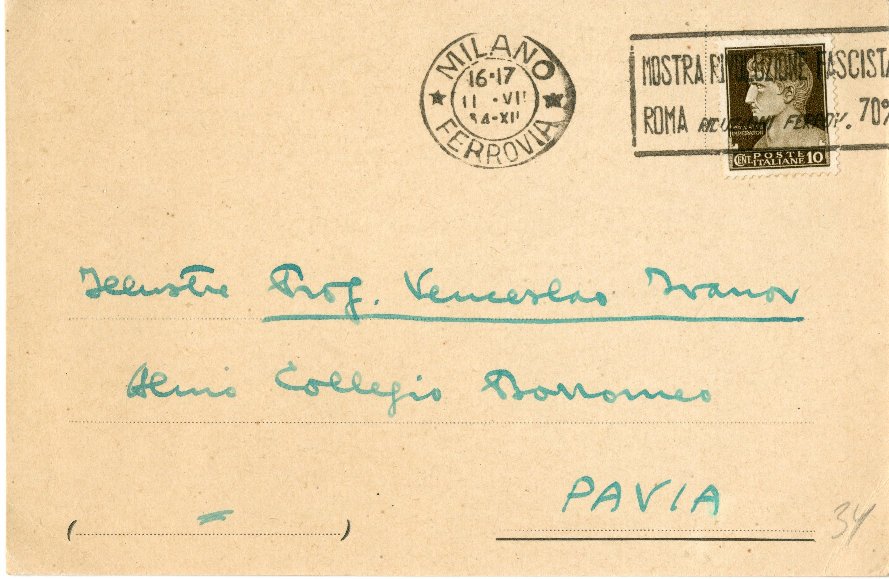 MILANO
16-17
11 · VII
34-XII
FERROVIA
MOSTRA RIVOLUZIONE FASCISTA
ROMA RIDUZIONI FERROV. 70%
CENT. POSTE ITALIANE 10
Illustre Prof. Venceslao Ivanov
Almo Collegio Borromeo
PAVIA
( = )
34